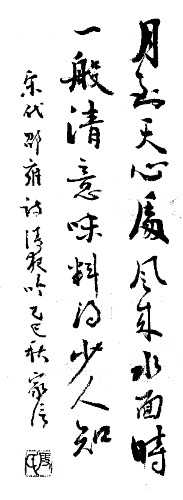 月到天心處風來水面時
一般清意味料得少人知
宋代邵雍詩清夜吟乙巳秋家信